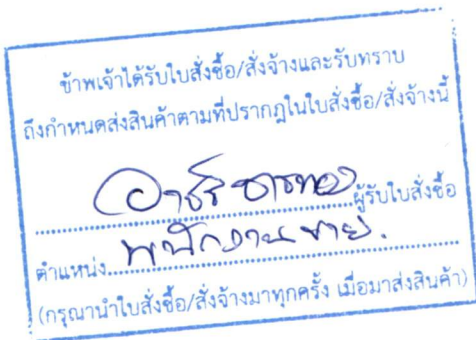 ข้าพเจ้าได้รับใบสั่งซื้อ/สั่งจ้างและรับทราบ
ถึงกำหนดส่งสินค้าตามที่ปรากฏในใบสั่งซื้อ/สั่งจ้างนี้
ผู้รับใบสั่งซื้อ
ตำแหน่ง พนักงานขาย.
(กรุณานำใบสั่งซื้อ/สั่งจ้างมาทุกครั้ง เมื่อมาส่งสินค้า)